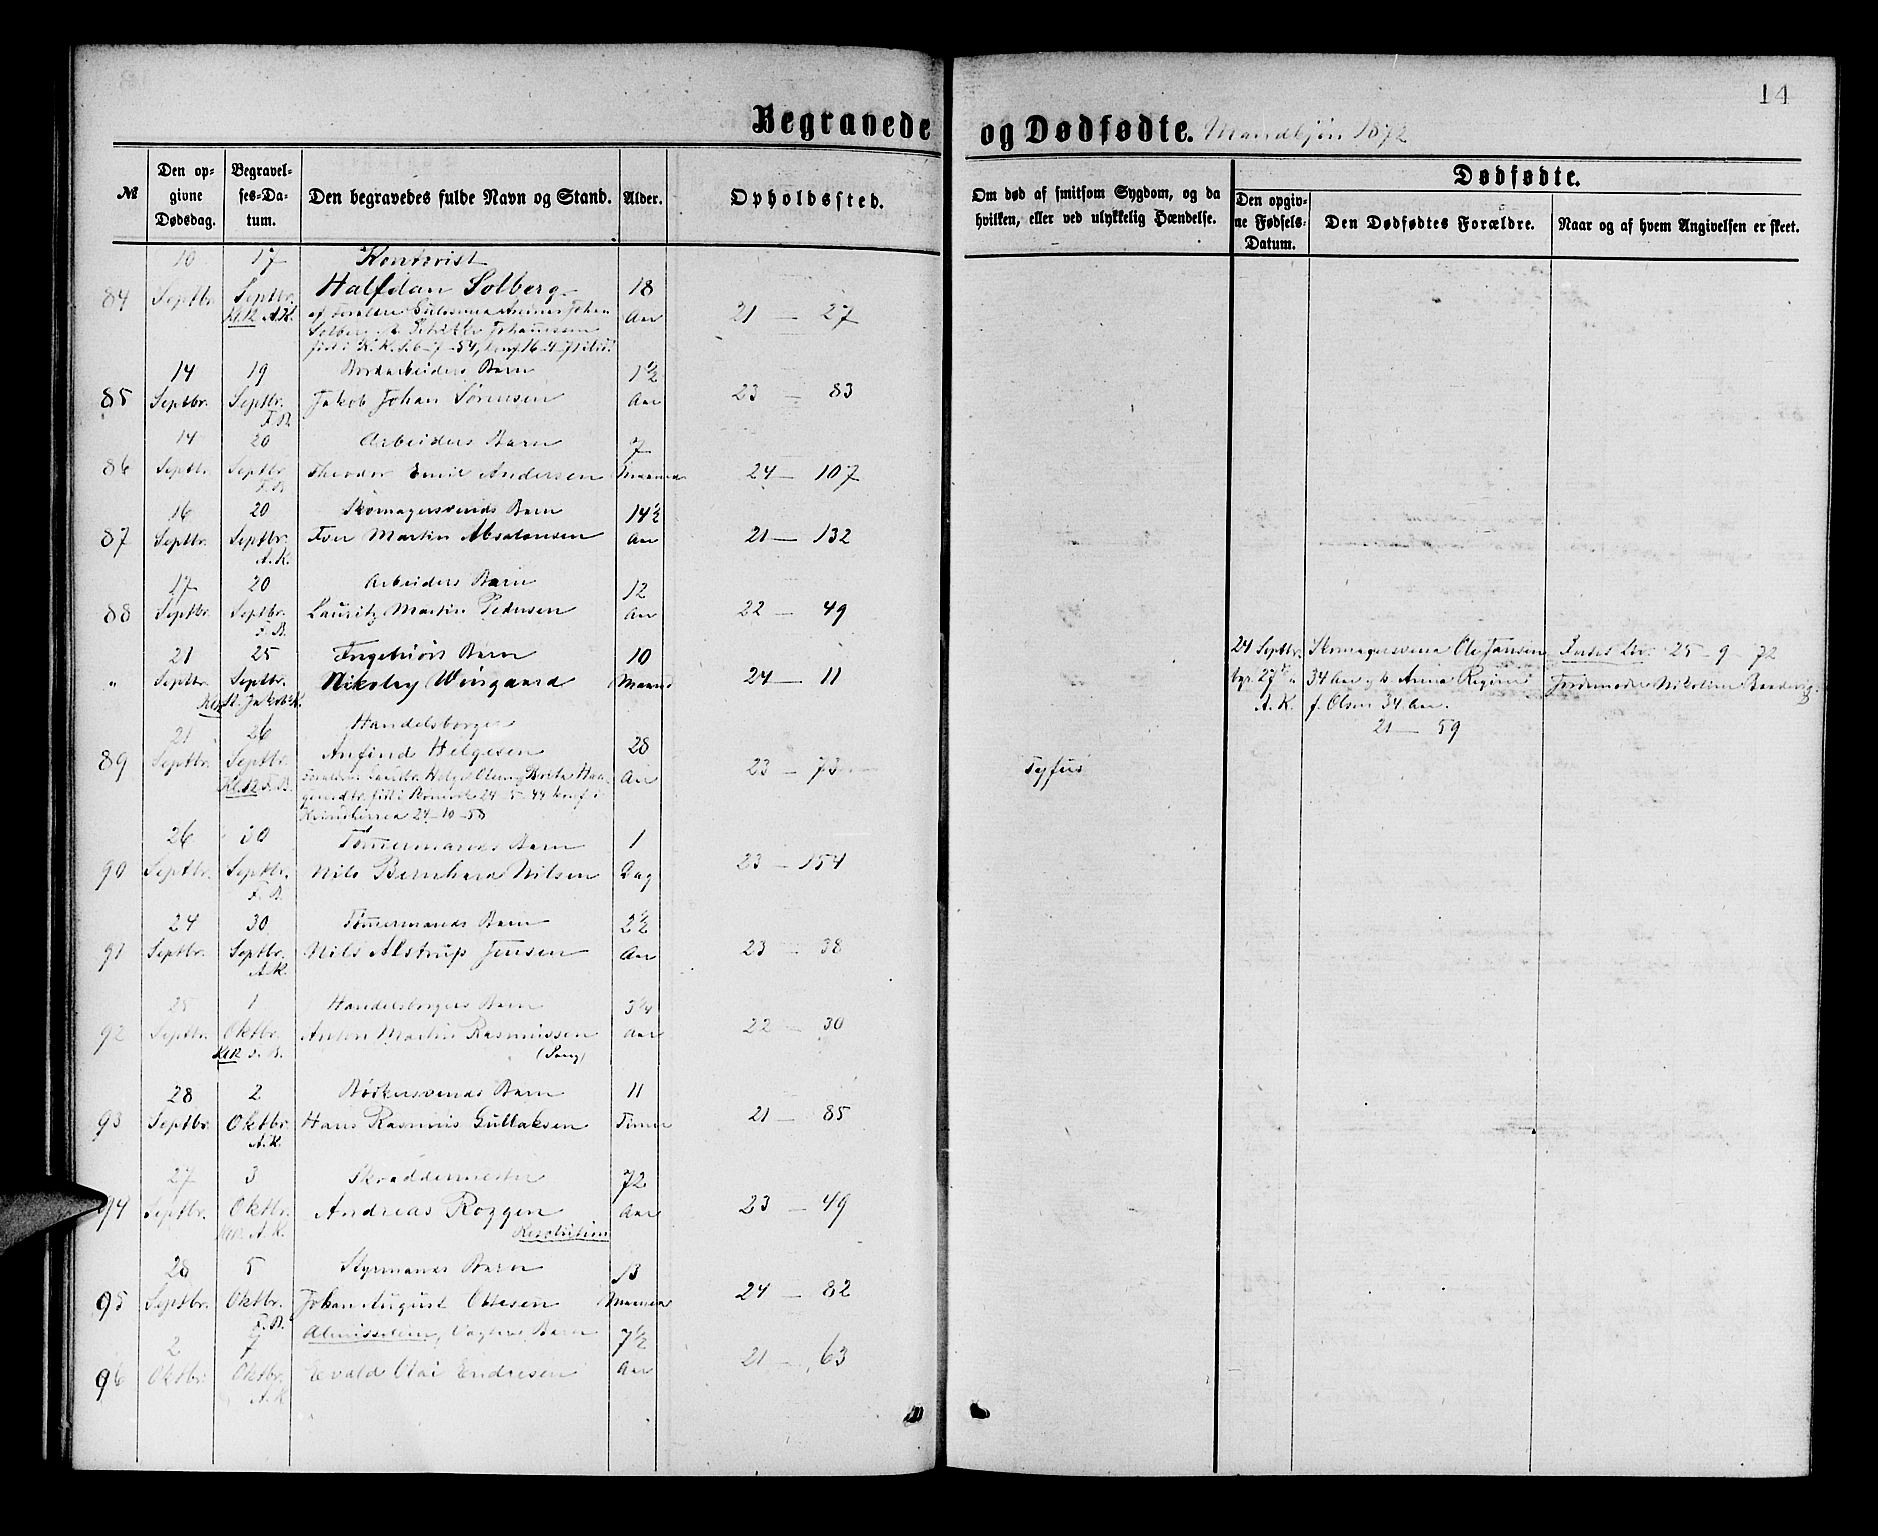 14
Begravede og Dødfødte. Mandkjøn 1872
№
Den opgivne Dødsdag.
Begravelses-Datum.
Den begravedes fulde Navn og Stand.
Alder.
Opholdssted.
Om død af smitsom Sygdom, og da hvilken, eller ved ulykkelig Hændelse.
Dødfødte.
Den opgivne Fødsels-Datum.
Den Dødfødtes Forældre.
Naar og af hvem Angivelsen er skeet.
10 17 Kontorist
84 Septbr. Septbr. Halfdan Solberg 18 Aar 21 — 27
A.K.
14 19 Bordarbeiders Barn 1½
85 Septbr. Septbr. Jakob Johan Sørensen Aar 23 — 83
F.B.
14 20 Arbeiders Barn 7
86 Septbr. Septbr. Theodor Emil Andersen Maaned 24 — 107
F.B.
16 20 Skomagersvends Barn 14½
87 Septbr. Septbr. Iver Martin Absalonsen Aar 21 — 132
A.K.
17 20 Arbeiders Barn 12
88 Septbr. Septbr. Lauritz Martin Pedersen Aar 22 — 49
F.B.
21 25 Ingeniørs Barn 10
" Septbr. Septbr. Nikolay Wiisgaard Maaned 24 — 11
St. Jakobs K.
24 Septbr. Skomagersvend Ole Jansen 25 - 9 - 72
bgr. 27 " 34 Aar og h. Anna Regine Jordemoder Nikoline
A.K. f. Olsen 34 Aar.
21 — 59
21 26 Handelsborger
89 Septbr. Septbr. Anfind Helgesen 28 Aar 23 — 73 Tyfus
F.B.
24 - 5 - 44
24 - 10 - 58
26 30 Tømmermands Barn 1
90 Septbr. Septbr. Nils Bernhard Nilsen Dag 23 — 154
F.B.
24 30 Tømmermands Barn 2½
91 Septbr. Septbr. Nils Alstrup Jensen Aar 23 — 38
A.K.
25 1 Handelsborgers Barn 3¼
92 Septbr. Oktbr. Anton Martin Rasmussen Aar 22 — 30
28 2 Bødkersvends Barn 11
93 Septbr. Oktbr. Hans Rasmus Gullaksen Timer 21 — 85
A.K.
27 3 Skræddermester 72
94 Septbr. Oktbr. Andreas Roggen Aar 23 — 49
A.K.
28 5 Styrmands Barn 13
95 Septbr. Oktbr. Johan August Ottesen Maaned 24 — 82
F.B.
2 7 Vægters Barn 7½
96 Oktbr. Oktbr. Evald Olai Endresen Aar 21 — 63
A.K.